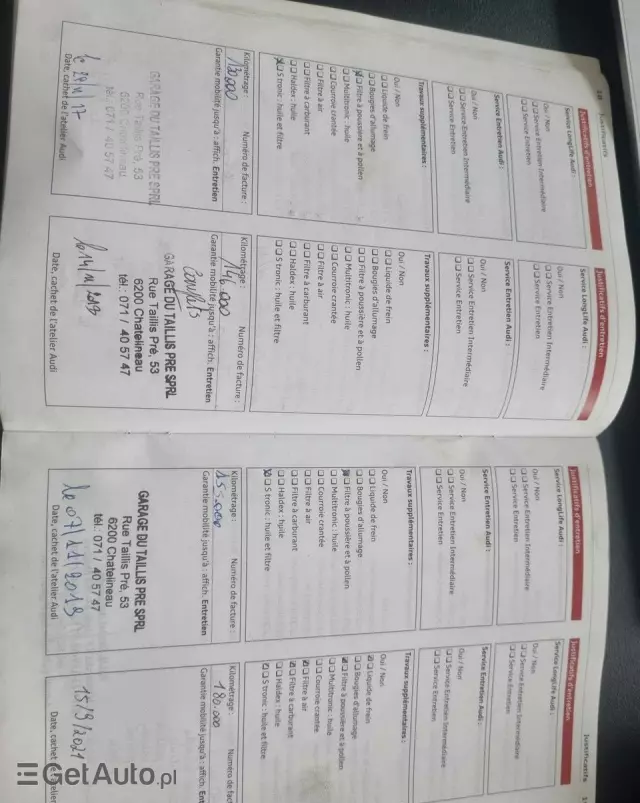 18 Justificatifs
Justificatifs d'entretien
Service LongLife Audi :
Oui / Non
Service Entretien Intermédiaire
Service Entretien
Service Entretien Audi :
Oui / Non
Service Entretien Intermédiaire
Service Entretien
Travaux supplémentaires :
Oui / Non
Liquide de frein
Bougies d'allumage
Filtre à poussière et à pollen
Multitronic : huile
Courroie crantée
Filtre à air
Filtre à carburant
Haldex : huile
S tronic : huile et filtre
Kilométrage : Numéro de facture :
130000
Garantie mobilité jusqu'à : affich. Entretien
GARAGE DU TAILLIS PRE SPRL
Rue Taillis Pré, 53
6200 Chatelineau
tél. 071 / 40 57 47
Date, cachet de l'atelier Audi
Justificatifs d'entretien
Service LongLife Audi :
Oui / Non
Service Entretien Intermédiaire
Service Entretien
Service Entretien Audi :
Oui / Non
Service Entretien Intermédiaire
Service Entretien
Travaux supplémentaires :
Oui / Non
Liquide de frein
Bougies d'allumage
Filtre à poussière et à pollen
Multitronic : huile
Courroie crantée
Filtre à air
Filtre à carburant
Haldex : huile
S tronic : huile et filtre
Kilométrage : Numéro de facture :
146.000
Garantie mobilité jusqu'à : affich. Entretien
GARAGE DU TAILLIS PRE SPRL
Rue Taillis Pré, 53
6200 Chatelineau
tél. 071 / 40 57 47
Date, cachet de l'atelier Audi
Justificatifs d'entretien
Service LongLife Audi :
Oui / Non
Service Entretien Intermédiaire
Service Entretien
Service Entretien Audi :
Oui / Non
Service Entretien Intermédiaire
Service Entretien
Travaux supplémentaires :
Oui / Non
Liquide de frein
Bougies d'allumage
Filtre à poussière et à pollen
Multitronic : huile
Courroie crantée
Filtre à air
Filtre à carburant
Haldex : huile
S tronic : huile et filtre
Kilométrage : Numéro de facture :
Garantie mobilité jusqu'à : affich. Entretien
GARAGE DU TAILLIS PRE SPRL
Rue Taillis Pré, 53
6200 Chatelineau
tél. 071 / 40 57 47
le 07/11/2019
Date, cachet de l'atelier Audi
Justificatifs
Justificatifs d'entretien
Service LongLife Audi :
Oui / Non
Service Entretien Intermédiaire
Service Entretien
Service Entretien Audi :
Oui / Non
Service Entretien Intermédiaire
Service Entretien
Travaux supplémentaires :
Oui / Non
Liquide de frein
Bougies d'allumage
Filtre à poussière et à pollen
Multitronic : huile
Courroie crantée
Filtre à air
Filtre à carburant
Haldex : huile
S tronic : huile et filtre
Kilométrage : Numéro de
180.000
Garantie mobilité jusqu'à : affich.
15/9/2021
Date, cachet de l'atelier
GetAuto.pl